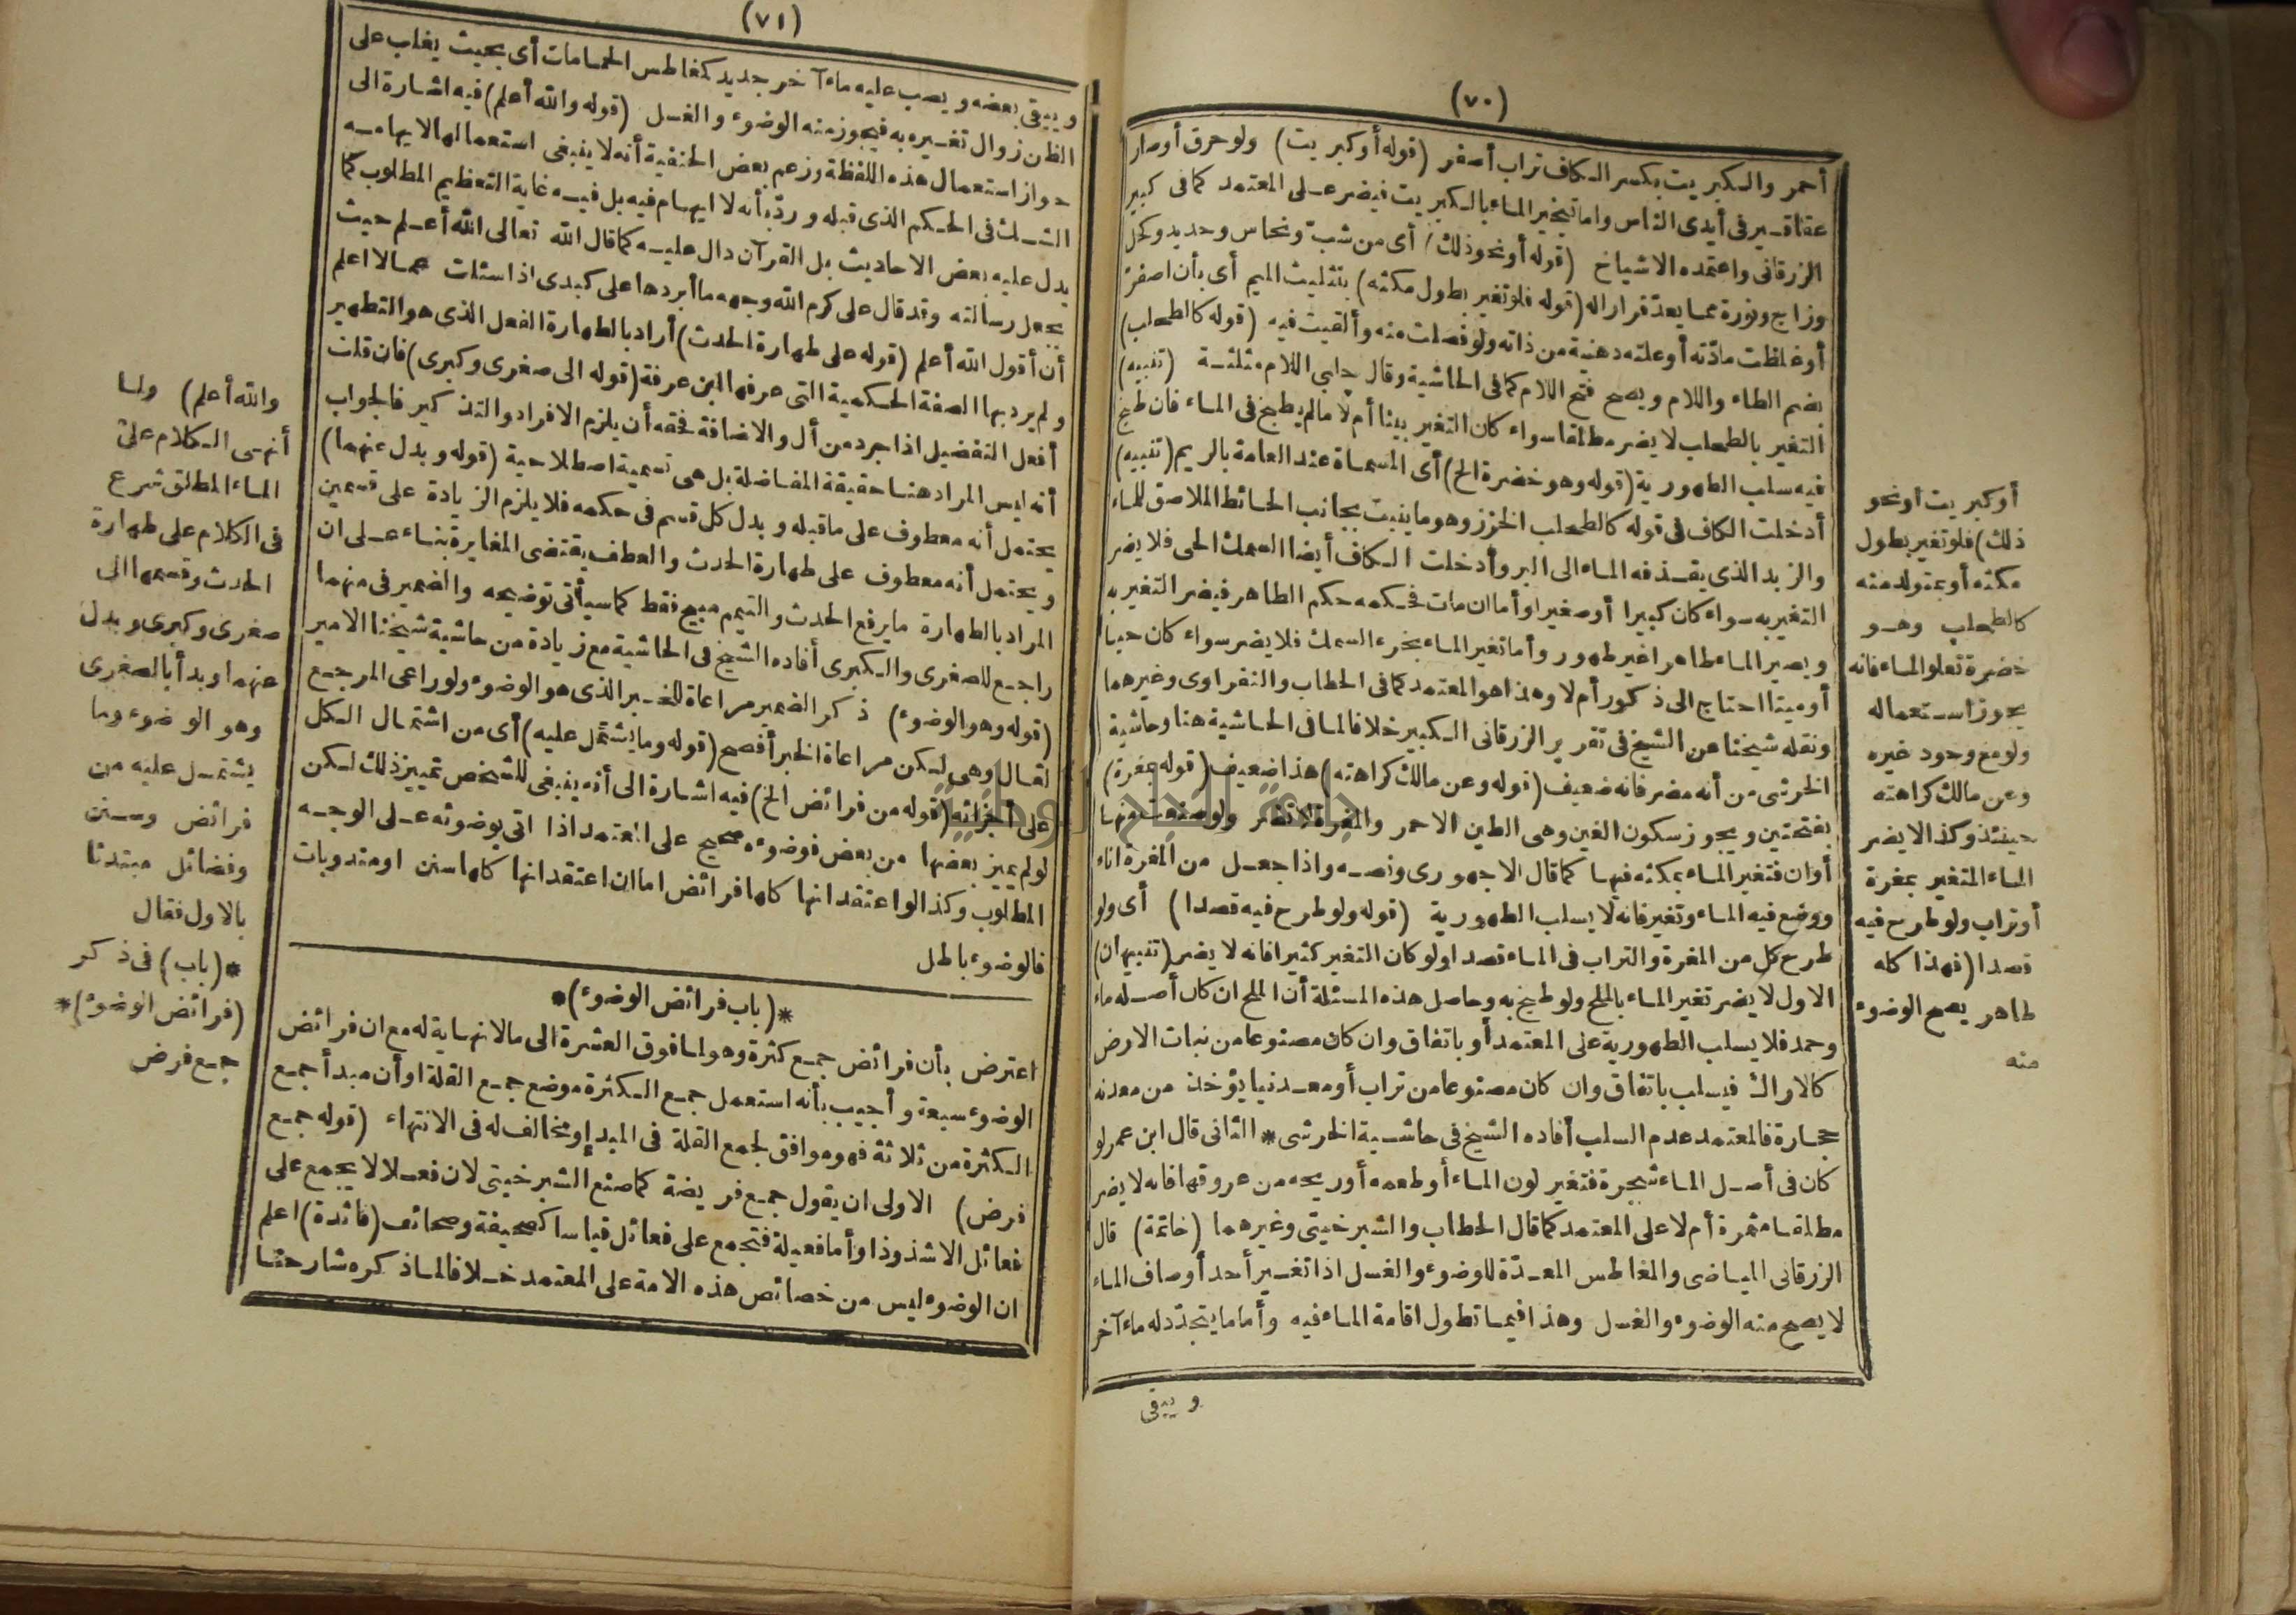 (٧٠)
أحمر والكبريت بكسر الكاف تراب أصفر (قوله أو كبريت) ولو حرق أو صار
عقاقير فى أيدى الناس واما تبخير الماء بالكبريت فيضر على المعتمد كما فى كبير
الزرقانى واعتمده الاشياخ (قوله أو نحو ذلك) أى من شبّ ونحاس وحديد وكحل
وزاج ونورة مما يعدّ قرارا له (قوله فلو تغير بطول مكثه) بتثليث الميم أى بأن اصفرّ
أو غلظت مادّته أو علته دهنية من ذاته ولو فصلت منه وألقيت فيه (قوله كالطحلب)
بضم الطاء واللام ويصح فتح اللام كما فى الحاشية وقال جلبي اللام مثلثة (تنبيه)
التغير بالطحلب لا يضر مطلقا سواء كان التغير بينا أم لا مالم يطبخ فى الماء فان طبخ
فيه سلب الطهورية (قوله وهو خضرة الخ) أى المسماة عند العامة بالريم (تنبيه)
أدخلت الكاف فى قوله كالطحلب الخزز وهو ما ينبت بجانب الحائط الملاصق للماء
والزبد الذى يقذفه الماء الى البر وأدخلت الكاف أيضا السمك الحى فلا يضر
التغير به سواء كان كبيرا أو صغيرا وأما ان مات فحكمه حكم الطاهر فيضر التغير به
ويصير الماء طاهرا غير طهور وأما تغير الماء بخرء السمك فلا يضر سواء كان حيا
أو ميتا احتاج الى ذكور أم لا وهذا هو المعتمد كما فى الحطاب والنفراوى وغيرهما
ونقله شيخنا عن الشيخ فى تقرير الزرقانى الكبير خلافا لما فى الحاشية هنا وحاشية
الخرشى من أنه مضر فانه ضعيف (قوله وعن مالك كراهته) هذا ضعيف (قوله بمغرة)
بفتحتين ويجوز سكون الغين وهى الطين الاحمر والمغرة لا تضر ولو صنعت منها
أوان فتغير الماء بمكثه فيها كما قال الاجهورى ونصه واذا جعل من المغرة اناء
ووضع فيه الماء وتغير فانه لا يسلب الطهورية (قوله ولو طرح فيه قصدا) أى ولو
طرح كل من المغرة والتراب فى الماء قصدا ولو كان التغير كثيرا فانه لا يضر (تنبيهان)
الاول لا يضر تغير الماء بالملح ولو طبخ به وحاصل هذه المسئلة أن الملح ان كان أصله ماء
وجمد فلا يسلب الطهورية على المعتمد أو باتفاق وان كان مصنوعا من نبات الارض
كالاراك فيسلب باتفاق وان كان مصنوعا من تراب أو معدنيا يؤخذ من معدنه
حجارة فالمعتمد عدم السلب أفاده الشيخ فى حاشية الخرشى * الثانى قال ابن عمر لو
كان فى أصل الماء شجرة فتغير لون الماء أو طعمه أو ريحه من عروقها فانه لا يضر
مطلقا مثمرة أم لا على المعتمد كما قال الحطاب والشبرخيتى وغيرهما (خاتمة) قال
الزرقانى المياضى والمغاطس المعدّة للوضوء والغسل اذا تغير أحد أوصاف الماء
لا يصح منه الوضوء والغسل وهذا فيما تطول اقامة الماء فيه وأما ما يتجدّد له ماء آخر
ويبقى
أو كبريت او نحو
ذلك) فلو تغير بطول
مكثه أو بمتولد منه
كالطحلب وهو
خضرة تعلو الماء فانه
يجوز استعماله
ولو مع وجود غيره
وعن مالك كراهته
حينئذ وكذا لا يضر
الماء المتغير بمغرة
أو تراب ولو طرح فيه
قصدا (فهذا كله
طاهر يصح الوضوء
منه
(٧١)
ويبقى بعضه ويصب عليه ماء آخر جديد كمغاطس الحمامات أى بحيث يغلب على
الظن زوال تغيره به فيجوز منه الوضوء والغسل (قوله والله أعلم) فيه اشارة الى
جواز استعمال هذه اللفظة وزعم بعض الحنفية أنه لا ينبغى استعمالها لايهامه
الشك فى الحكم الذى قبله وردّ بأنه لا ايهام فيه بل فيه غاية التعظيم المطلوب كما
يدل عليه بعض الاحاديث بل القرآن دال عليه كما قال الله تعالى الله أعلم حيث
يجعل رسالته وقد قال على كرم الله وجهه ما أبردها على كبدى اذا سئلت عما لا اعلم
أن أقول الله أعلم (قوله على طهارة الحدث) أراد بالطهارة الفعل الذى هو التطهير
ولم يرد بها الصفة الحكمية التى عرفها ابن عرفة (قوله الى صغرى وكبرى) فان قلت
أفعل التفضيل اذا جرد من أل والاضافة فحقه أن يلزم الافراد والتذكير فالجواب
أنه ليس المراد هنا حقيقة المفاضلة بل هى تسمية اصطلاحية (قوله وبدل عنهما)
يحتمل أنه معطوف على ما قبله وبدل كل قسم فى حكمه فلا يلزم الزيادة على قسمين
ويحتمل أنه معطوف على طهارة الحدث والعطف يقتضى المغايرة بناء على ان
المراد بالطهارة ما يرفع الحدث والتيمم مبيح فقط كما سيأتى توضيحه والضمير فى منهما
راجع للصغرى والكبرى أفاده الشيخ فى الحاشية مع زيادة من حاشية شيخنا الامير
(قوله وهو الوضوء) ذكر الضمير مراعاة للخبر الذى هو الوضوء ولو راعى المرجع
لقال وهى لكن مراعاة الخبر أفصح (قوله وما يشتمل عليه) أى من اشتمال الكل
على أجزائه (قوله من فرائض الخ) فيه اشارة الى أنه ينبغى للشخص تمييز ذلك لكن
لو لم يميز بعضها من بعض فوضوءه صحيح على المعتمد اذا اتى بوضوئه على الوجه
المطلوب وكذا لو اعتقد انها كلها فرائض اما ان اعتقد انها كلها سنن او مندوبات
فالوضوء باطل
*(باب فرائض الوضوء)*
اعترض بأن فرائض جمع كثرة وهو لما فوق العشرة الى مالا نهاية له مع ان فرائض
الوضوء سبعة وأجيب بأنه استعمل جمع الكثرة موضع جمع القلة او أن مبدأ جمع
الكثرة من ثلاثة فهو موافق لجمع القلة فى المبدإ ومخالف له فى الانتهاء (قوله جمع
فرض) الاولى ان يقول جمع فريضة كما صنع الشبرخيتى لان فعلا لا يجمع على
فعائل الا شذوذا وأما فعيلة فتجمع على فعائل قياسا كصحيفة وصحائف (فائدة) اعلم
ان الوضوء ليس من خصائص هذه الامة على المعتمد خلافا لما ذكره شارحنا
والله أعلم) ولما
أنهى الكلام على
الماء المطلق شرع
فى الكلام على طهارة
الحدث وقسمها الى
صغرى وكبرى وبدل
عنهما وبدأ بالصغرى
وهو الوضوء وما
يشتمل عليه من
فرائض وسنن
وفضائل مبتدئا
بالاول فقال
*(باب) فى ذكر
(فرائض الوضوء)*
جمع فرض